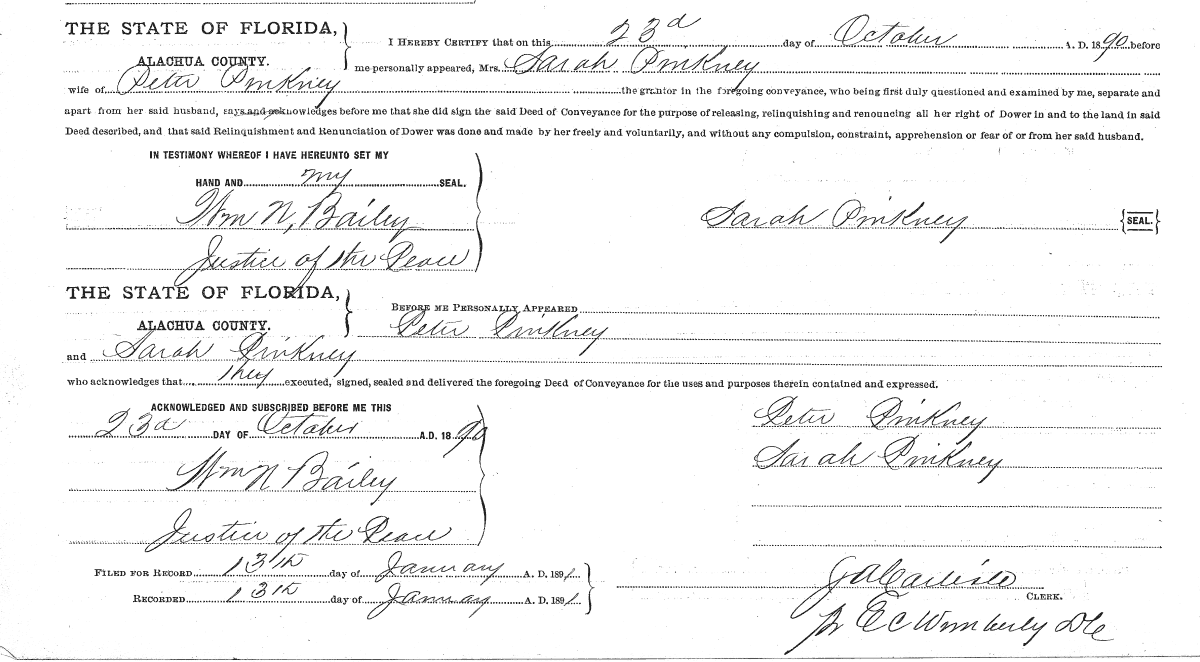 THE STATE OF FLORIDA,
ALACHUA COUNTY.
I HEREBY CERTIFY that on this 23d day of October A. D. 1890 before
me personally appeared, Mrs. Sarah Pinkney
wife of Peter Pinkney the grantor in the foregoing conveyance, who being first duly questioned and examined by me, separate and
apart from her said husband, says and acknowledges before me that she did sign the said Deed of Conveyance for the purpose of releasing, relinquishing and renouncing all her right of Dower in and to the land in said
Deed described, and that said Relinquishment and Renunciation of Dower was done and made by her freely and voluntarily, and without any compulsion, constraint, apprehension or fear of or from her said husband.
IN TESTIMONY WHEREOF I HAVE HEREUNTO SET MY
HAND AND my SEAL.
Wm N, Bailey
Sarah Pinkney {SEAL.}
Justice of the Peace
THE STATE OF FLORIDA,
ALACHUA COUNTY.
BEFORE ME PERSONALLY APPEARED
Peter Pinkney
and Sarah Pinkney
who acknowledges that they executed, signed, sealed and delivered the foregoing Deed of Conveyance for the uses and purposes therein contained and expressed.
ACKNOWLEDGED AND SUBSCRIBED BEFORE ME THIS
23d DAY OF October A.D. 1890
Peter Pinkney
Sarah Pinkney
Wm N Bailey
Justice of the Peace
FILED FOR RECORD 13th day of January A. D. 1891.
RECORDED 13th day of January A. D. 1891.
J A Carlisle
CLERK.
pr E C Wimberly D C